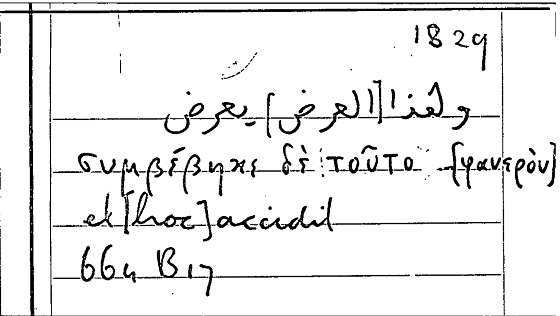 1829
ولهذا [العرض] يعرض
συμβέβηκε δὲ τοῦτο [φανερὸν]
et [hoc] accidit
664 B 17